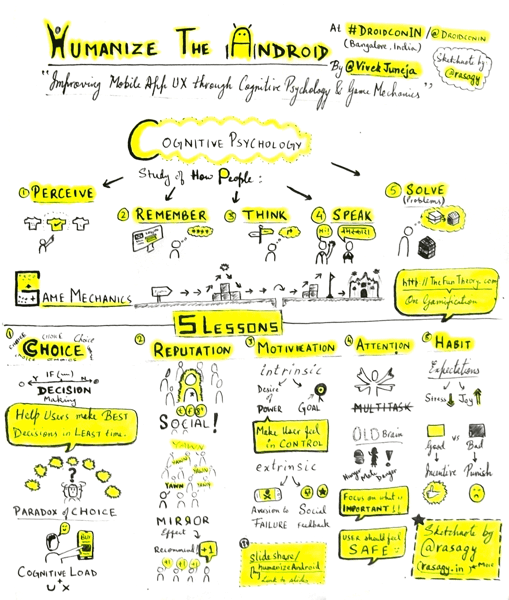 Humanize The Android
At #DroidconIN /@Droidconin
(Bangalore, India)
By @Vivek Juneja
Sketchnote by
@rasagy
"Improving Mobile App UX through Cognitive Psychology & Game Mechanics"
Cognitive Psychology
Study of How People:
① Perceive
② Remember
③ Think
④ Speak
⑤ Solve
(Problems)
Hi!
Game Mechanics
http://TheFunTheory.com
On Gamification
5 Lessons
① Choice
choice choice Choice
Y IF(—) N
Decision
Making
Help Users make BEST
Decisions in LEAST time.
?
Paradox of Choice
BUY
Cognitive Load
+
U X
② Reputation
Social!
YAWN
YAWN
YAWN
Mirror
Effect
Recommend! +1
③ Motivation
intrinsic
Desire of
Power
Goal
Make User feel
in CONTROL
extrinsic
Aversion to
Failure
Social
feedback
slideshare/
humanizeAndroid
Link to slides
④ Attention
Multitask
OLD Brain
Danger
Focus on what is
IMPORTANT!!
User should feel
SAFE
⑤ Habit
Expectations
Stress Joy
Good vs Bad
Incentive Punish
Sketchnote by
@rasagy
rasagy.in